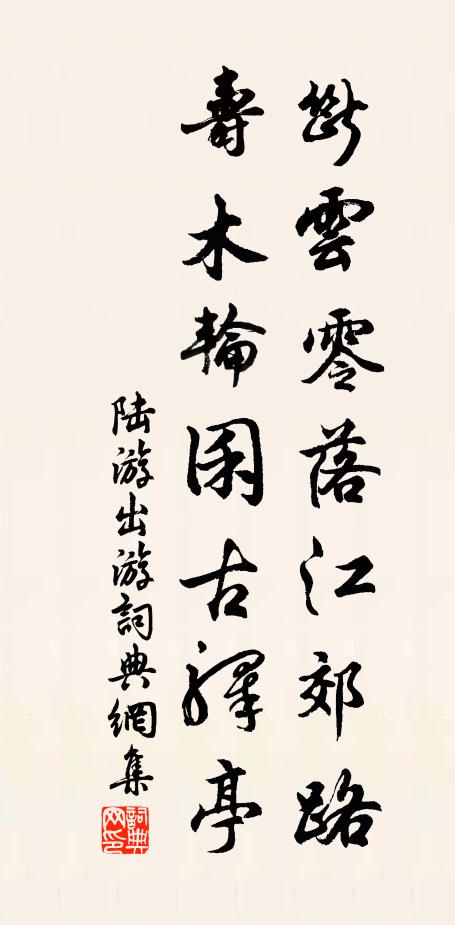 斷雲零落江郊路
壽木輪囷古驛亭
陆游出游詞典網集
詞典網印